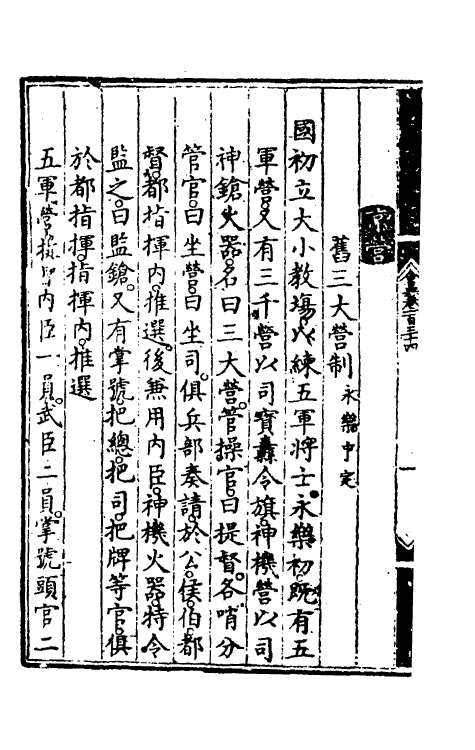 會典卷一百三十四
一
京營
舊三大營制永樂中定
國初立大小教塲以練五軍將士永樂初既有五
軍營又有三千營以司寶纛令旗神機營以司
神鎗火器名曰三大營管操官曰提督各哨分
管官曰坐營曰坐司俱兵部奏請於公侯伯都
督都指揮內推選後兼用內臣神機火器特令
監之曰監鎗又有掌號把總把司把牌等官俱
於都指揮指揮內推選
五軍營提督內臣一員武臣二員掌號頭官二